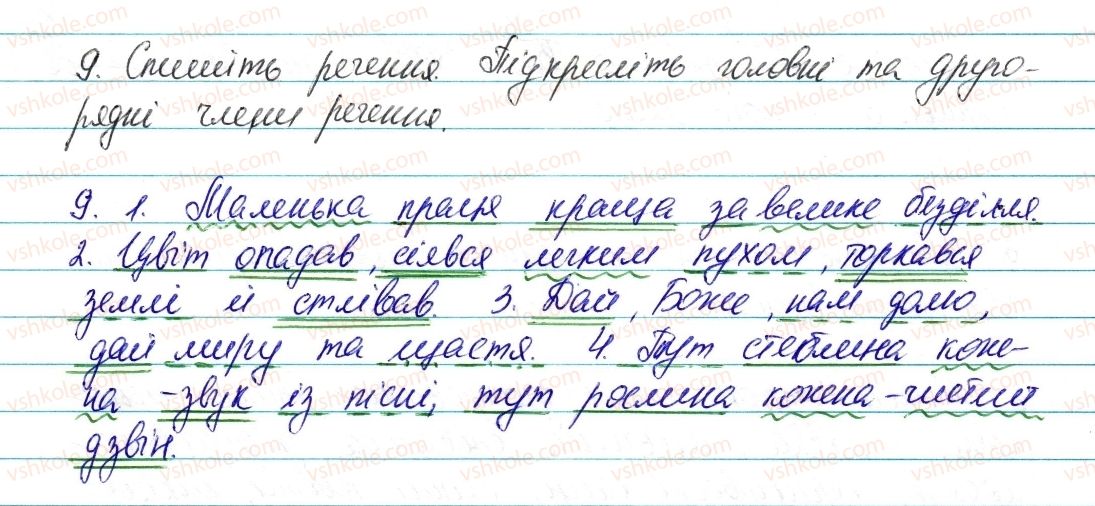 9. Спишіть речення. Підкресліть головні та друго-
рядні члени речення.
9. 1. Маленька праця краща за велике безділля.
2. Цвіт опадав, сіявся легким пухом, торкався
землі й стлівав. 3. Дай, Боже, нам долю,
дай миру та щастя. 4. Тут стеблина кож-
на - звук із пісні, тут рослина кожна - чистий
дзвін.